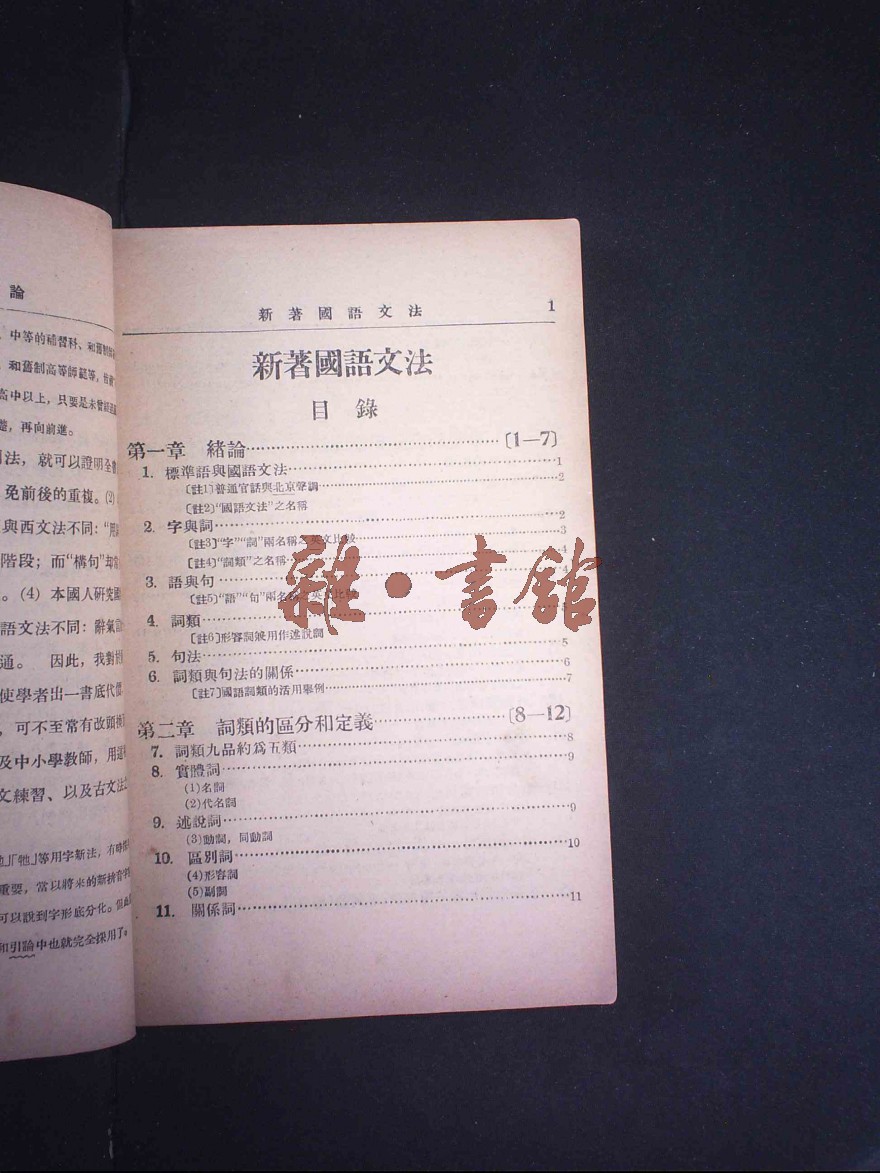 論
中等的補習科、和舊制師
和舊制高等師範等，
高中以上，只要是未曾經過
，再向前進。
法，就可以證明全
免前後的重複。(2)
與西文法不同：“用
階段；而“構句”却
。(4) 本國人研究國
語文法不同：辭氣
通。 因此，我對於
使學者出一書底代價
，可不至常有改頭換
及中小學教師，用這
文練習、以及古文法之
「牠」等用字新法，有時
重要，當以將來的新拼音字
可以說到字形底分化。
和引論中也就完全採用了。
新著國語文法 1
新著國語文法
目錄
第一章 緒論……〔1—7〕
1. 標準語與國語文法……1
〔註1〕普通官話與北京聲調……2
〔註2〕“國語文法”之名稱
2. 字與詞……2
〔註3〕“字”“詞”兩名稱之英文比較……3
〔註4〕“詞類”之名稱……4
3. 語與句……4
〔註5〕“語”“句”兩名稱之英文比較
4. 詞類……5
〔註6〕形容詞候用作述說詞
5. 句法……5
6. 詞類與句法的關係……6
〔註7〕國語詞類的活用舉例……7
第二章 詞類的區分和定義……〔8—12〕
7. 詞類九品約爲五類……8
8. 實體詞……9
(1)名詞
(2)代名詞
9. 述說詞……9
(3)動詞，同動詞
10. 區別詞……10
(4)形容詞
(5)副詞
11. 關係詞……11
雜·書館